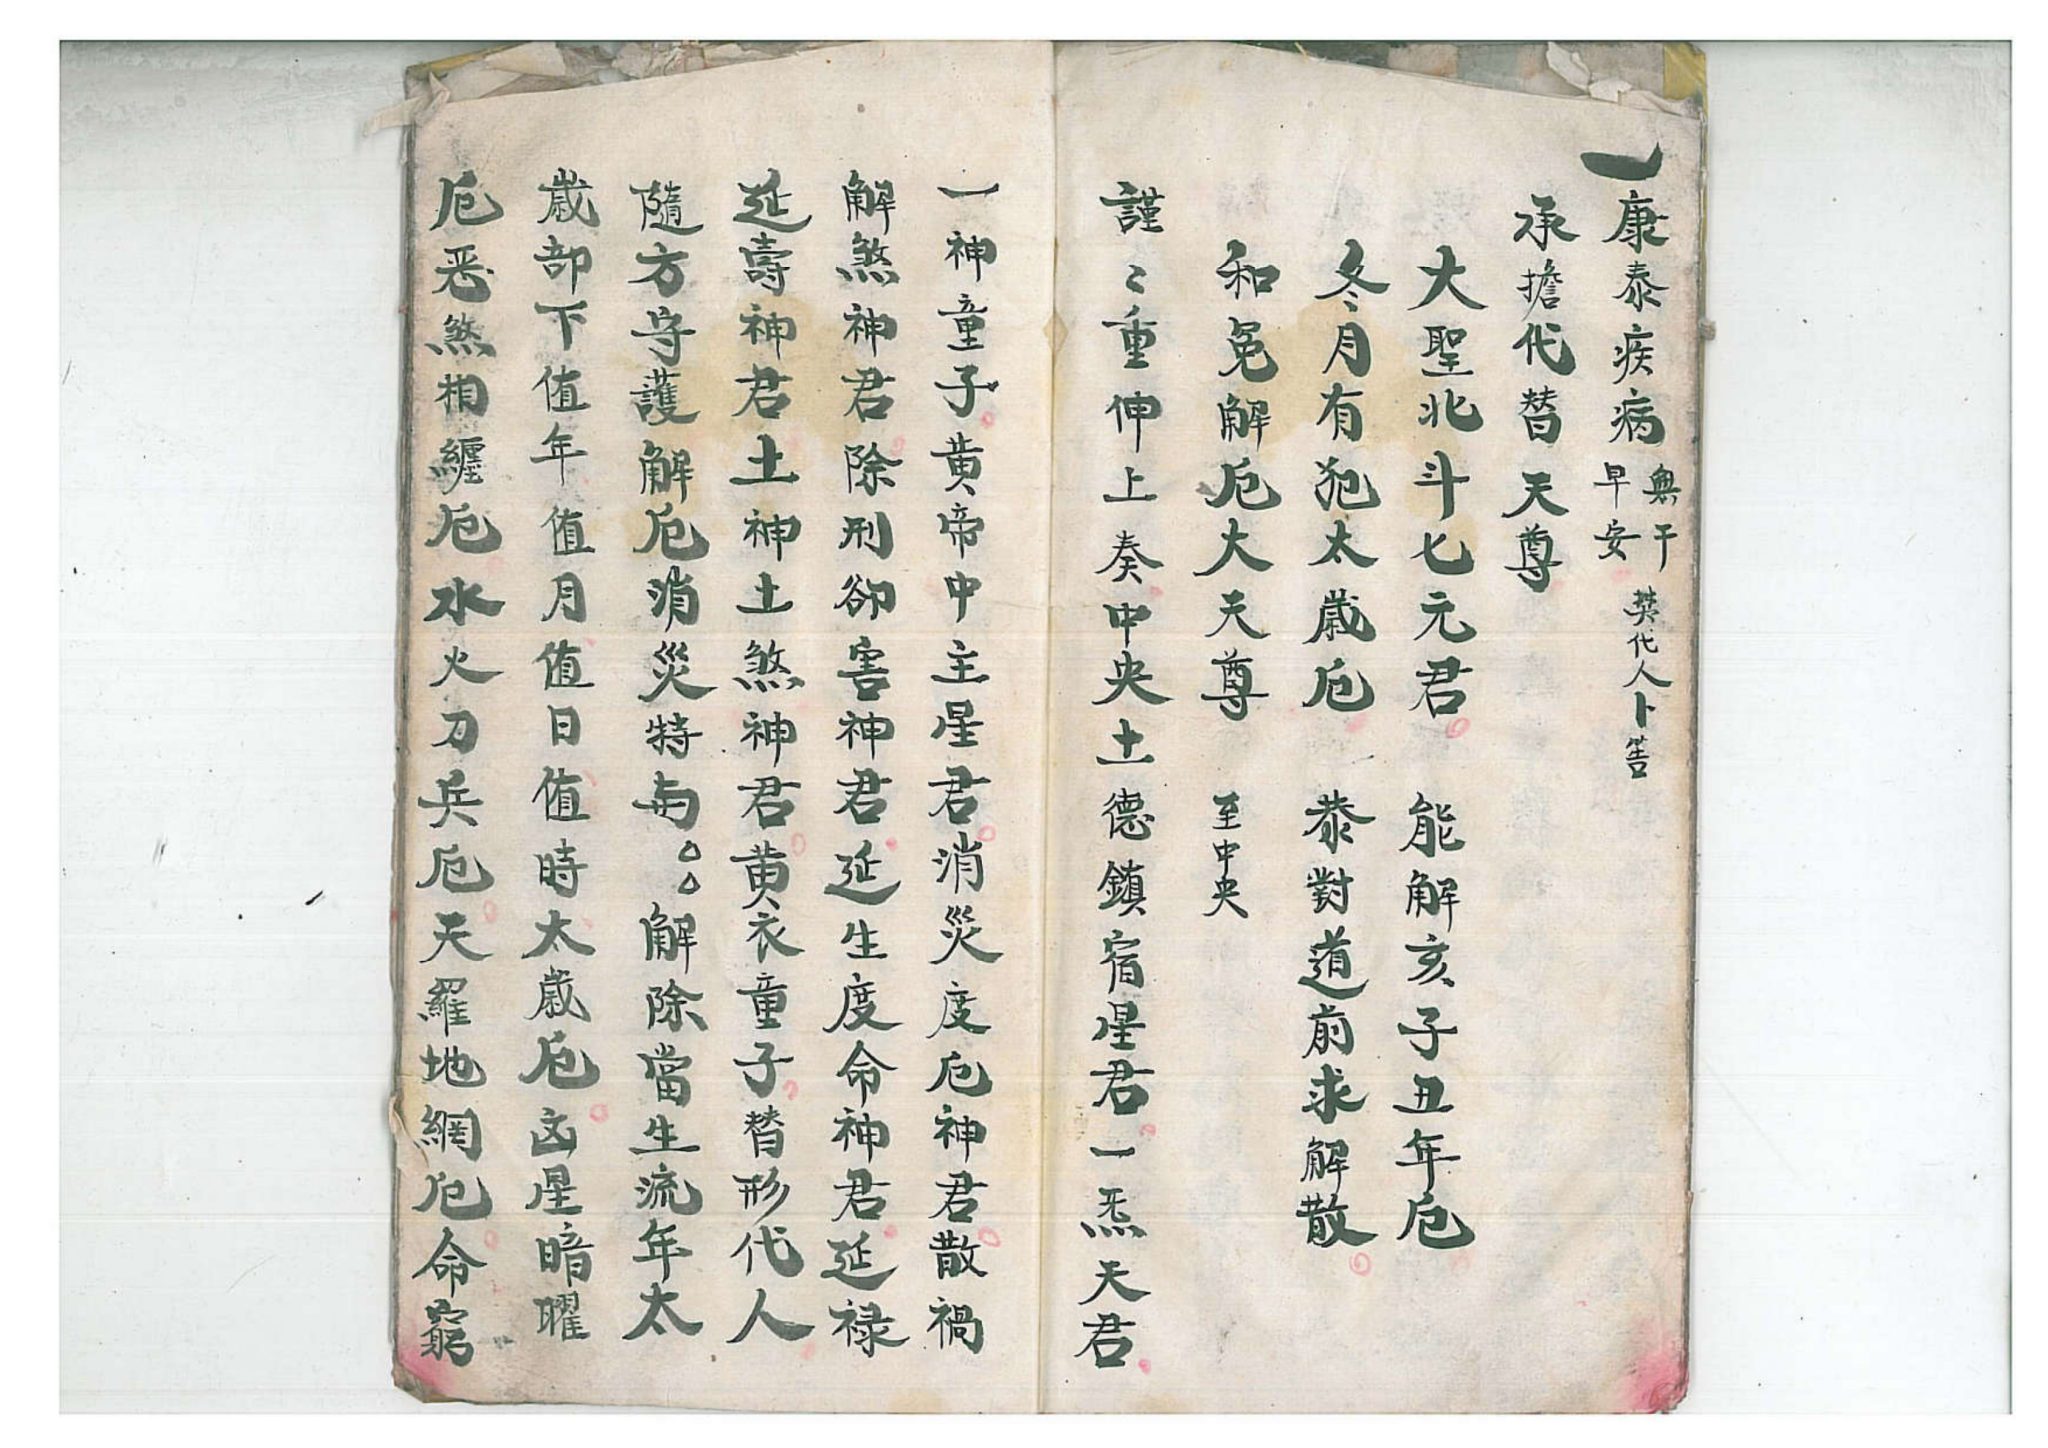 一康泰疾病 無干早安 焚代人卜筶
承擔代替天尊
大聖北斗七元君 能解亥子丑年厄
冬月有犯太歲厄 恭對道前求解散
和冤解厄大天尊 至中央
謹〻重伸上奏中央土德鎮宿星君一炁天君
一神童子黃帝中主星君消災度厄神君散禍
解煞神君除刑卻害神君延生度命神君延禄
延壽神君土神土煞神君黃衣童子替形代人
隨方守護解厄消災特与△△解除當生流年太
歲部下值年值月值日值時太歲厄凶星暗曜
厄恶煞相纏厄水火刀兵厄天羅地網厄命窮